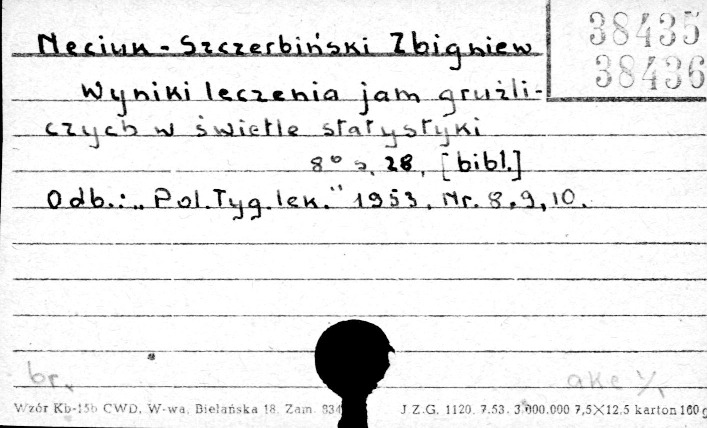 38435
38436
Neciuk-Szczerbiński Zbigniew
Wyniki leczenia jam gruźli-
czych w świetle statystyki
8° s. 28, [bibl.]
Odb.: „Pol.Tyg.lek.” 1953. Nr. 8,9,10.
br.
akc 1/1
Wzór Kb-15b CWD, W-wa, Bielańska 18. Zam. 834 J Z.G. 1120. 7.53. 3.000.000 7,5×12,5 karton 160 g